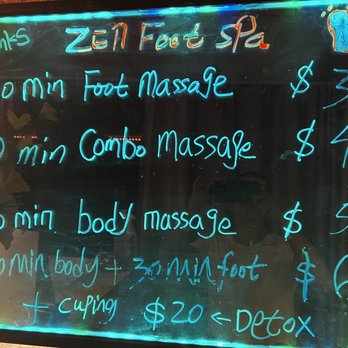 ZEN Foot SPa
0 min Foot Massage $ 3
min Combo massage $ 4
0 min body massage $
min body + 30 min foot $ 6
+ cuping $20 ← DETOX